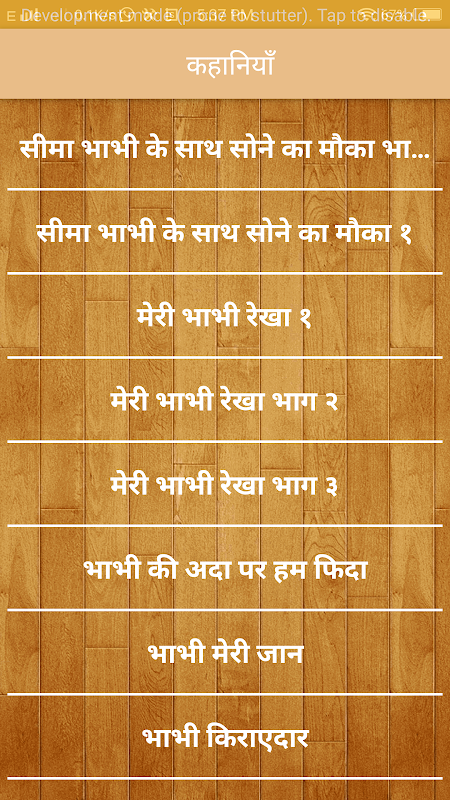 Development mode (prone to stutter). Tap to disable.
0.1K/s 5:37 PM 67%
कहानियाँ
सीमा भाभी के साथ सोने का मौका भा...
सीमा भाभी के साथ सोने का मौका १
मेरी भाभी रेखा १
मेरी भाभी रेखा भाग २
मेरी भाभी रेखा भाग ३
भाभी की अदा पर हम फिदा
भाभी मेरी जान
भाभी किराएदार